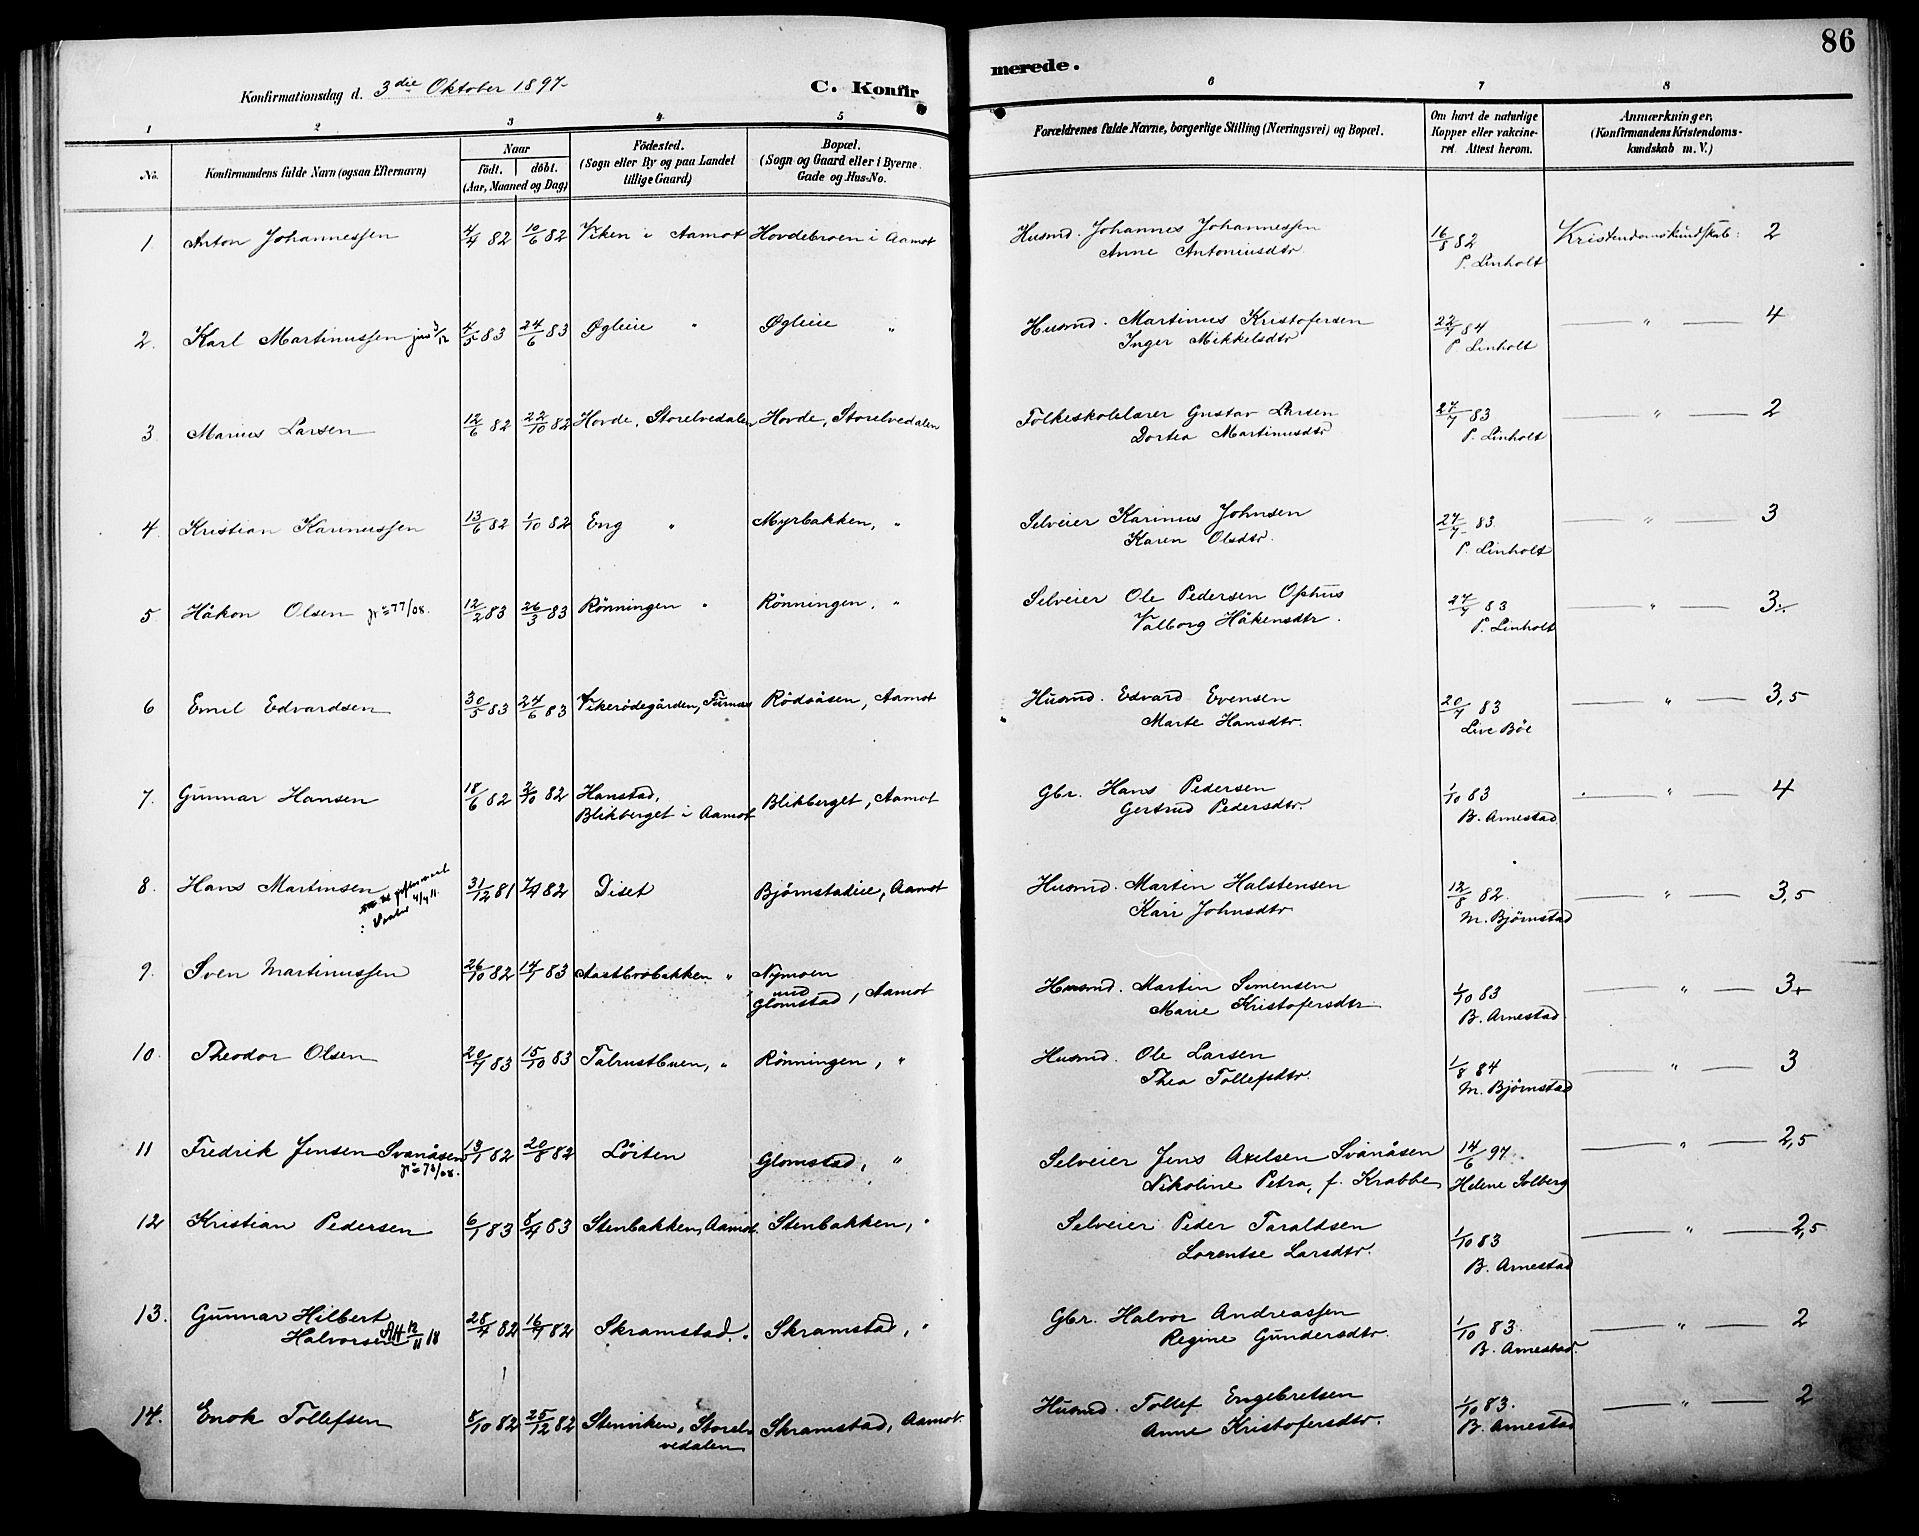 86
Konfirmationsdag d. 3die Oktober 1897.
C. Konfir
merede.
1 2 3 4 5 6 7 8
No.
Konfirmandens fulde Navn (ogsaa Efternavn)
Naar
födt. döbt.
(Aar, Maaned og Dag)
Födested.
(Sogn eller By og paa Landet
tillige Gaard)
Bopæl.
(Sogn og Gaard eller i Byerne
Gade og Hus-No.
Forældrenes fulde Navne, borgerlige Stilling (Næringsvei) og Bopæl.
Om havt de naturlige
Kopper eller vakcine-
ret. Attest herom.
Anmærkninger,
(Konfirmandens Kristendoms-
kundskab m. V.)
1. Anton Johannessen 4/4 82 10/6 82 Viken i Aamot Hovdebroen i Aamot Husmd. Johannes Johannessen 16/8 82 Kristendomskundskab: 2
Anne Antoniusdtr. P. Linholt
2. Karl Martinussen 4/5 83 24/6 83 Øgleie " Øgleie " Husmd. Martinus Kristofersen 22/7 84 " 4
Inger Mikkelsdtr P. Linholt
3. Marius Larsen 12/6 82 22/10 82 Hovde, Storelvedalen Hovde, Storelvedalen Folkeskolelærer Gustav Larsen 27/7 83 " 2
Dortea Martinusdtr P. Linholt
4. Kristian Karinussen 13/6 82 1/10 82 Eng " Myrbakken, " Selveier Karinus Johnsen 27/7 83. " 3
Karen Olsdtr. P. Linholt
5. Håkon Olsen 77/08. 12/2 83 26/3 83 Rønningen " Rønningen, " Selveier Ole Pedersen Ophus 27/7 83 " 3÷
Valborg Håkensdtr. P. Linholt
6 Emil Edvardsen 30/5 83 24/6 83 Vikerødegården, Furnæs Rödsåsen, Aamot Husmd. Edvard Evensen 20/7 83 " 3,5
Marte Hansdtr. Live Böe
7. Gunnar Hansen 18/6 82 2/10 82 Hanstad, Blikberget, Aamot Gbr. Hans Pedersen 1/10 83 " 4
Blikberget i Aamot Gertrud Pedersdtr. B. Arnestad
8. Hans Martinsen 31/12 81 7/4 82 Diset Bjørnstadie, Aamot Husmd. Martin Halstensen 12/8 82. " 3,5
4/4 11. Kari Johnsdtr M. Bjørnstad
9. Sven Martinussen 26/10 82 14/1 83 Aastbrobakken " Nymoen Husmd. Martin Simensen 1/10 83 " 3+
und
Glomstad, Aamot Marie Kristofersdtr B. Arnestad
10. Theodor Olsen 20/7 83 15/10 83 Talrustbuen, " Rønningen, " Husmd. Ole Larsen 1/8 84 " 3
Thea Tollefsdtr. M. Bjørnstad
11 Fredrik Jensen Svanåsen 13/1 82 20/8 82 Löiten Glomstad, " Selveier Jens Axelsen Svanåsen 14/6 97. " 2,5
Nikoline Petra, f. Krabbe Helene Solberg
12 Kristian Pedersen 6/1 83 8/4 83 Stenbakken, Aamot. Stenbakken, " Selveier Peder Taraldsen 1/10 83 " 2,5
Lorentse Larsdtr. B. Arnestad
13. Gunnar Hilbert 28/4 82 16/7 82 Skramstad. " Skramstad, " Gbr. Halvor Andreassen 1/10 83. " 2
Halvorsen 12/11 18 Regine Gundersdtr. B. Arnestad.
14. Enok Tollefsen 8/10 82 25/12 82 Stenviken, Storel- Skramstad, Aamot. Husmd. Tollef Engebretsen 1/10 83. " 2
vedalen Anne Kristofersdtr. B. Arnestad